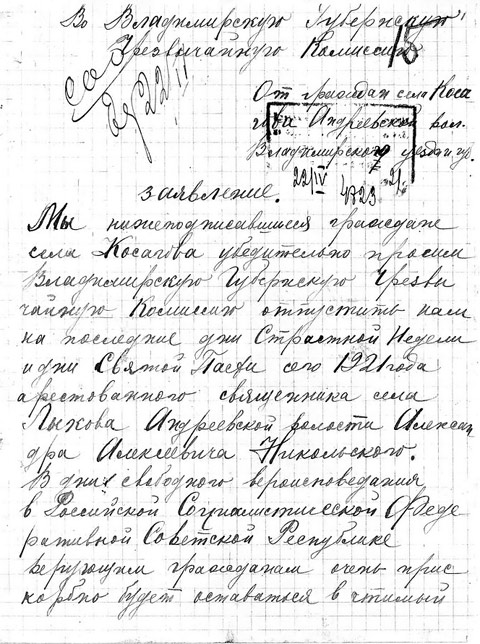 Во Владимирскую Губернскую
Чрезвычайную Комиссию
18
От граждан села Коса
гова Андреевской вол.
Владимирского уезда и гу.
22/IV 4823 21
заявление.
Мы нижеподписавшиеся граждане
села Косагова убедительно просим
Владимирскую Губернскую Чрезвы
чайную Комиссию отпустить нам
на последние дни Страстной Недели
и дни Святой Пасхи сего 1921 года
арестованного священника села
Лыкова Андреевской волости Алексан
дра Алексеевича Никольского.
В дни свободного вероисповедания
в Российской Социалистической Феде
ративной Советской Республике
верующим гражданам очень прис
корбно будет оставаться в чтимый